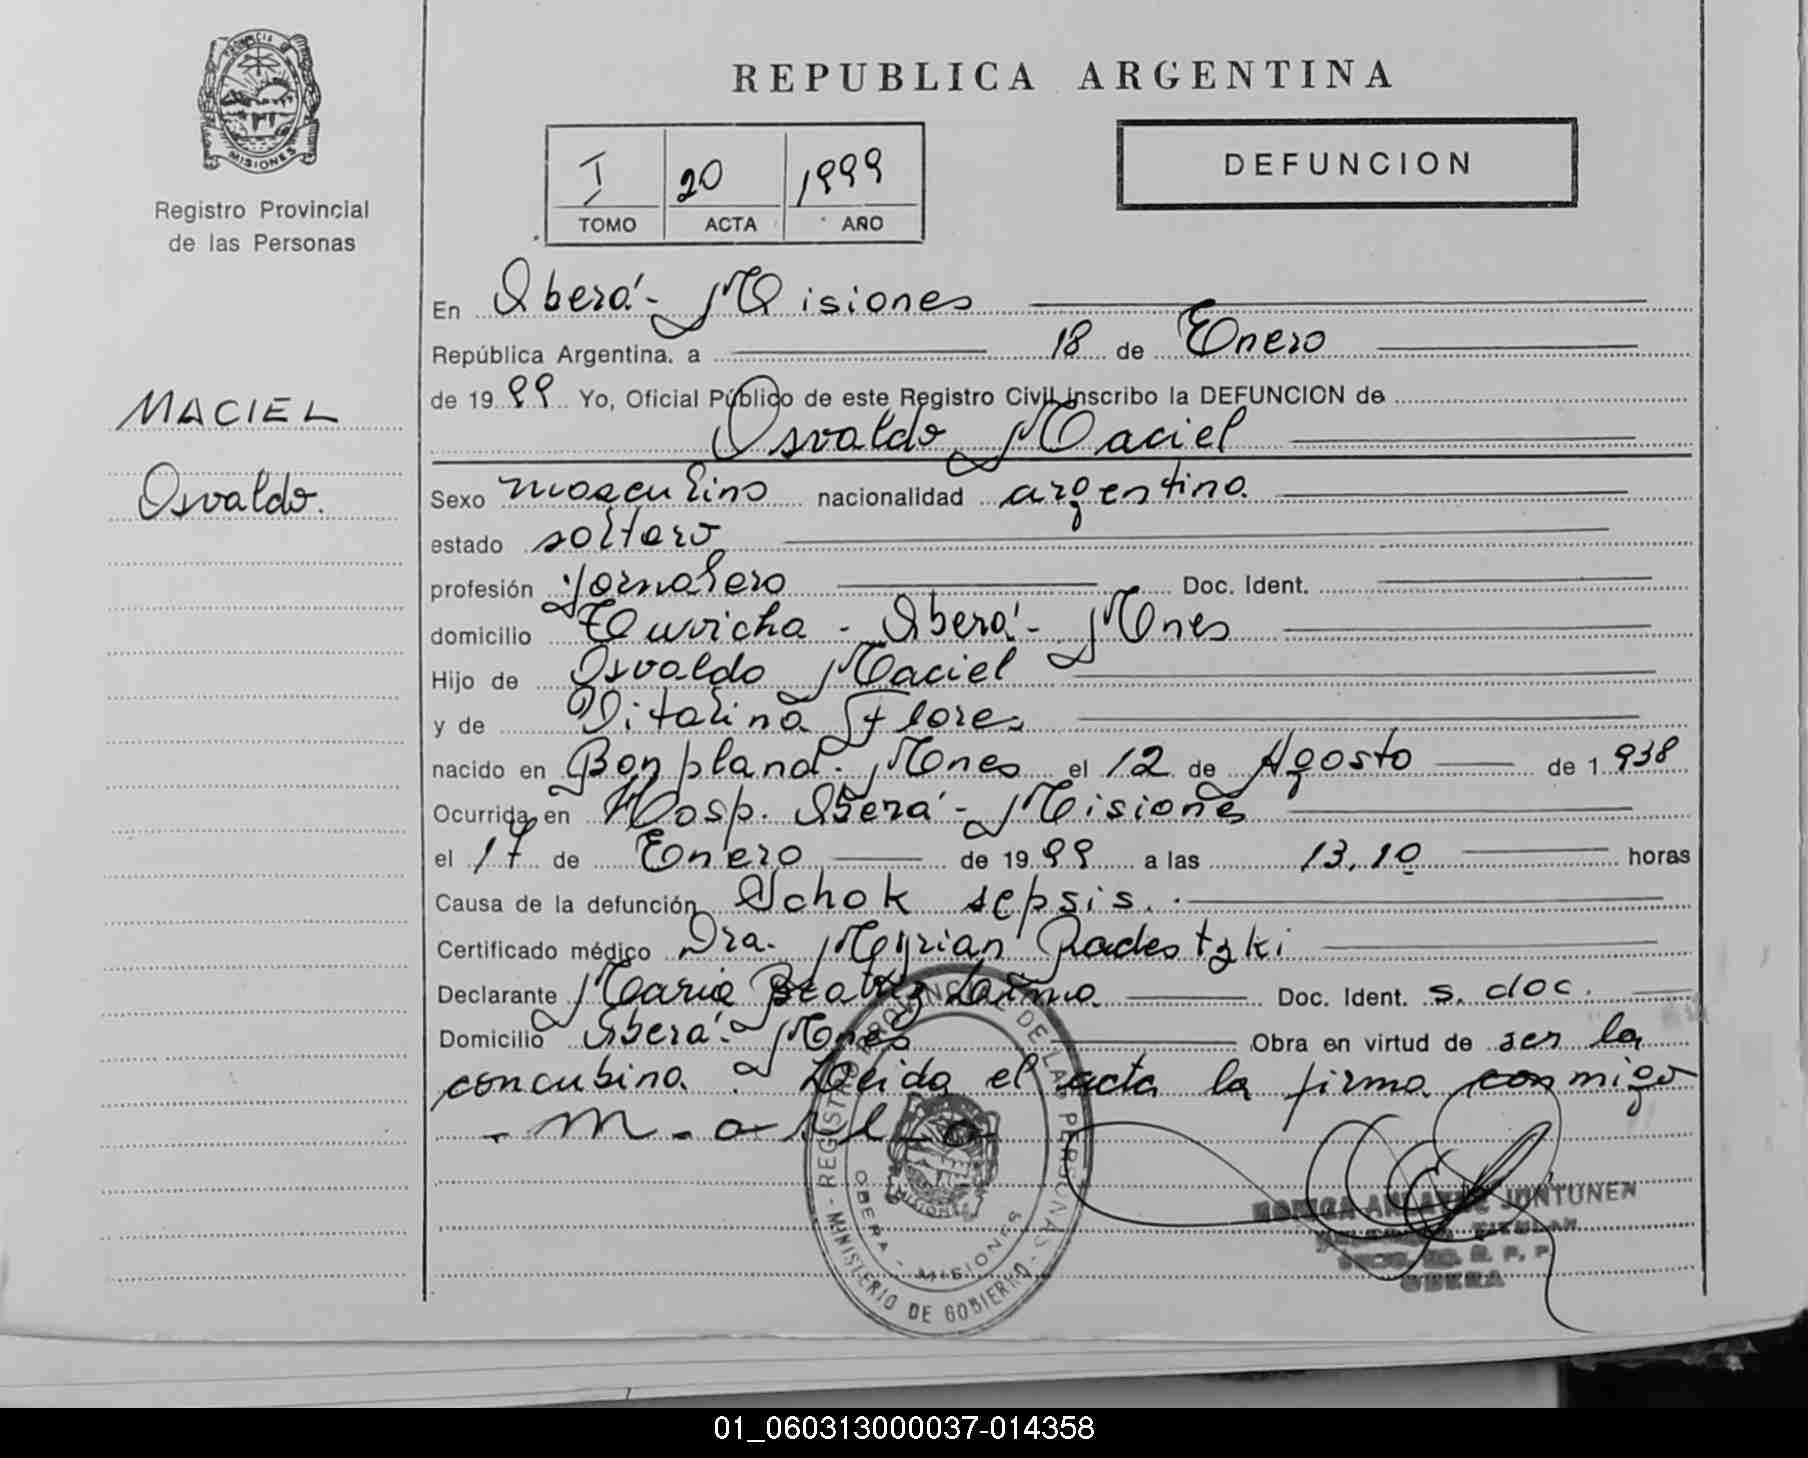 PROVINCIA DE
MISIONES
Registro Provincial
de las Personas
MACIEL
Osvaldo.
REPUBLICA ARGENTINA
I 20 1999
TOMO ACTA AÑO
DEFUNCION
En Oberá - Misiones
República Argentina. a 18 de Enero
de 1999 Yo, Oficial Público de este Registro Civil inscribo la DEFUNCION de
Osvaldo Maciel
Sexo masculino nacionalidad argentina
estado soltero
profesión jornalero Doc. Ident.
domicilio Tuvicha - Oberá - Mnes
Hijo de Osvaldo Maciel
y de Vitalina Flores
nacido en Bonpland - Mnes el 12 de Agosto de 1938
Ocurrida en Hosp. Oberá - Misiones
el 17 de Enero de 1999 a las 13,10 horas
Causa de la defunción Schok sepsis.
Certificado médico Dra. Myrian Radestzki
Declarante Maria Beatriz Doc. Ident. s. doc.
Domicilio Oberá - Mnes Obra en virtud de ser la
concubina. Leida el acta la firma conmigo
REGISTRO PROVINCIAL DE LAS PERSONAS - MINISTERIO DE GOBIERNO -
OBERA - MISIONES
MISIONES
JUNTUNEN
TITULAR
R. P. P.
OBERA
01_060313000037-014358